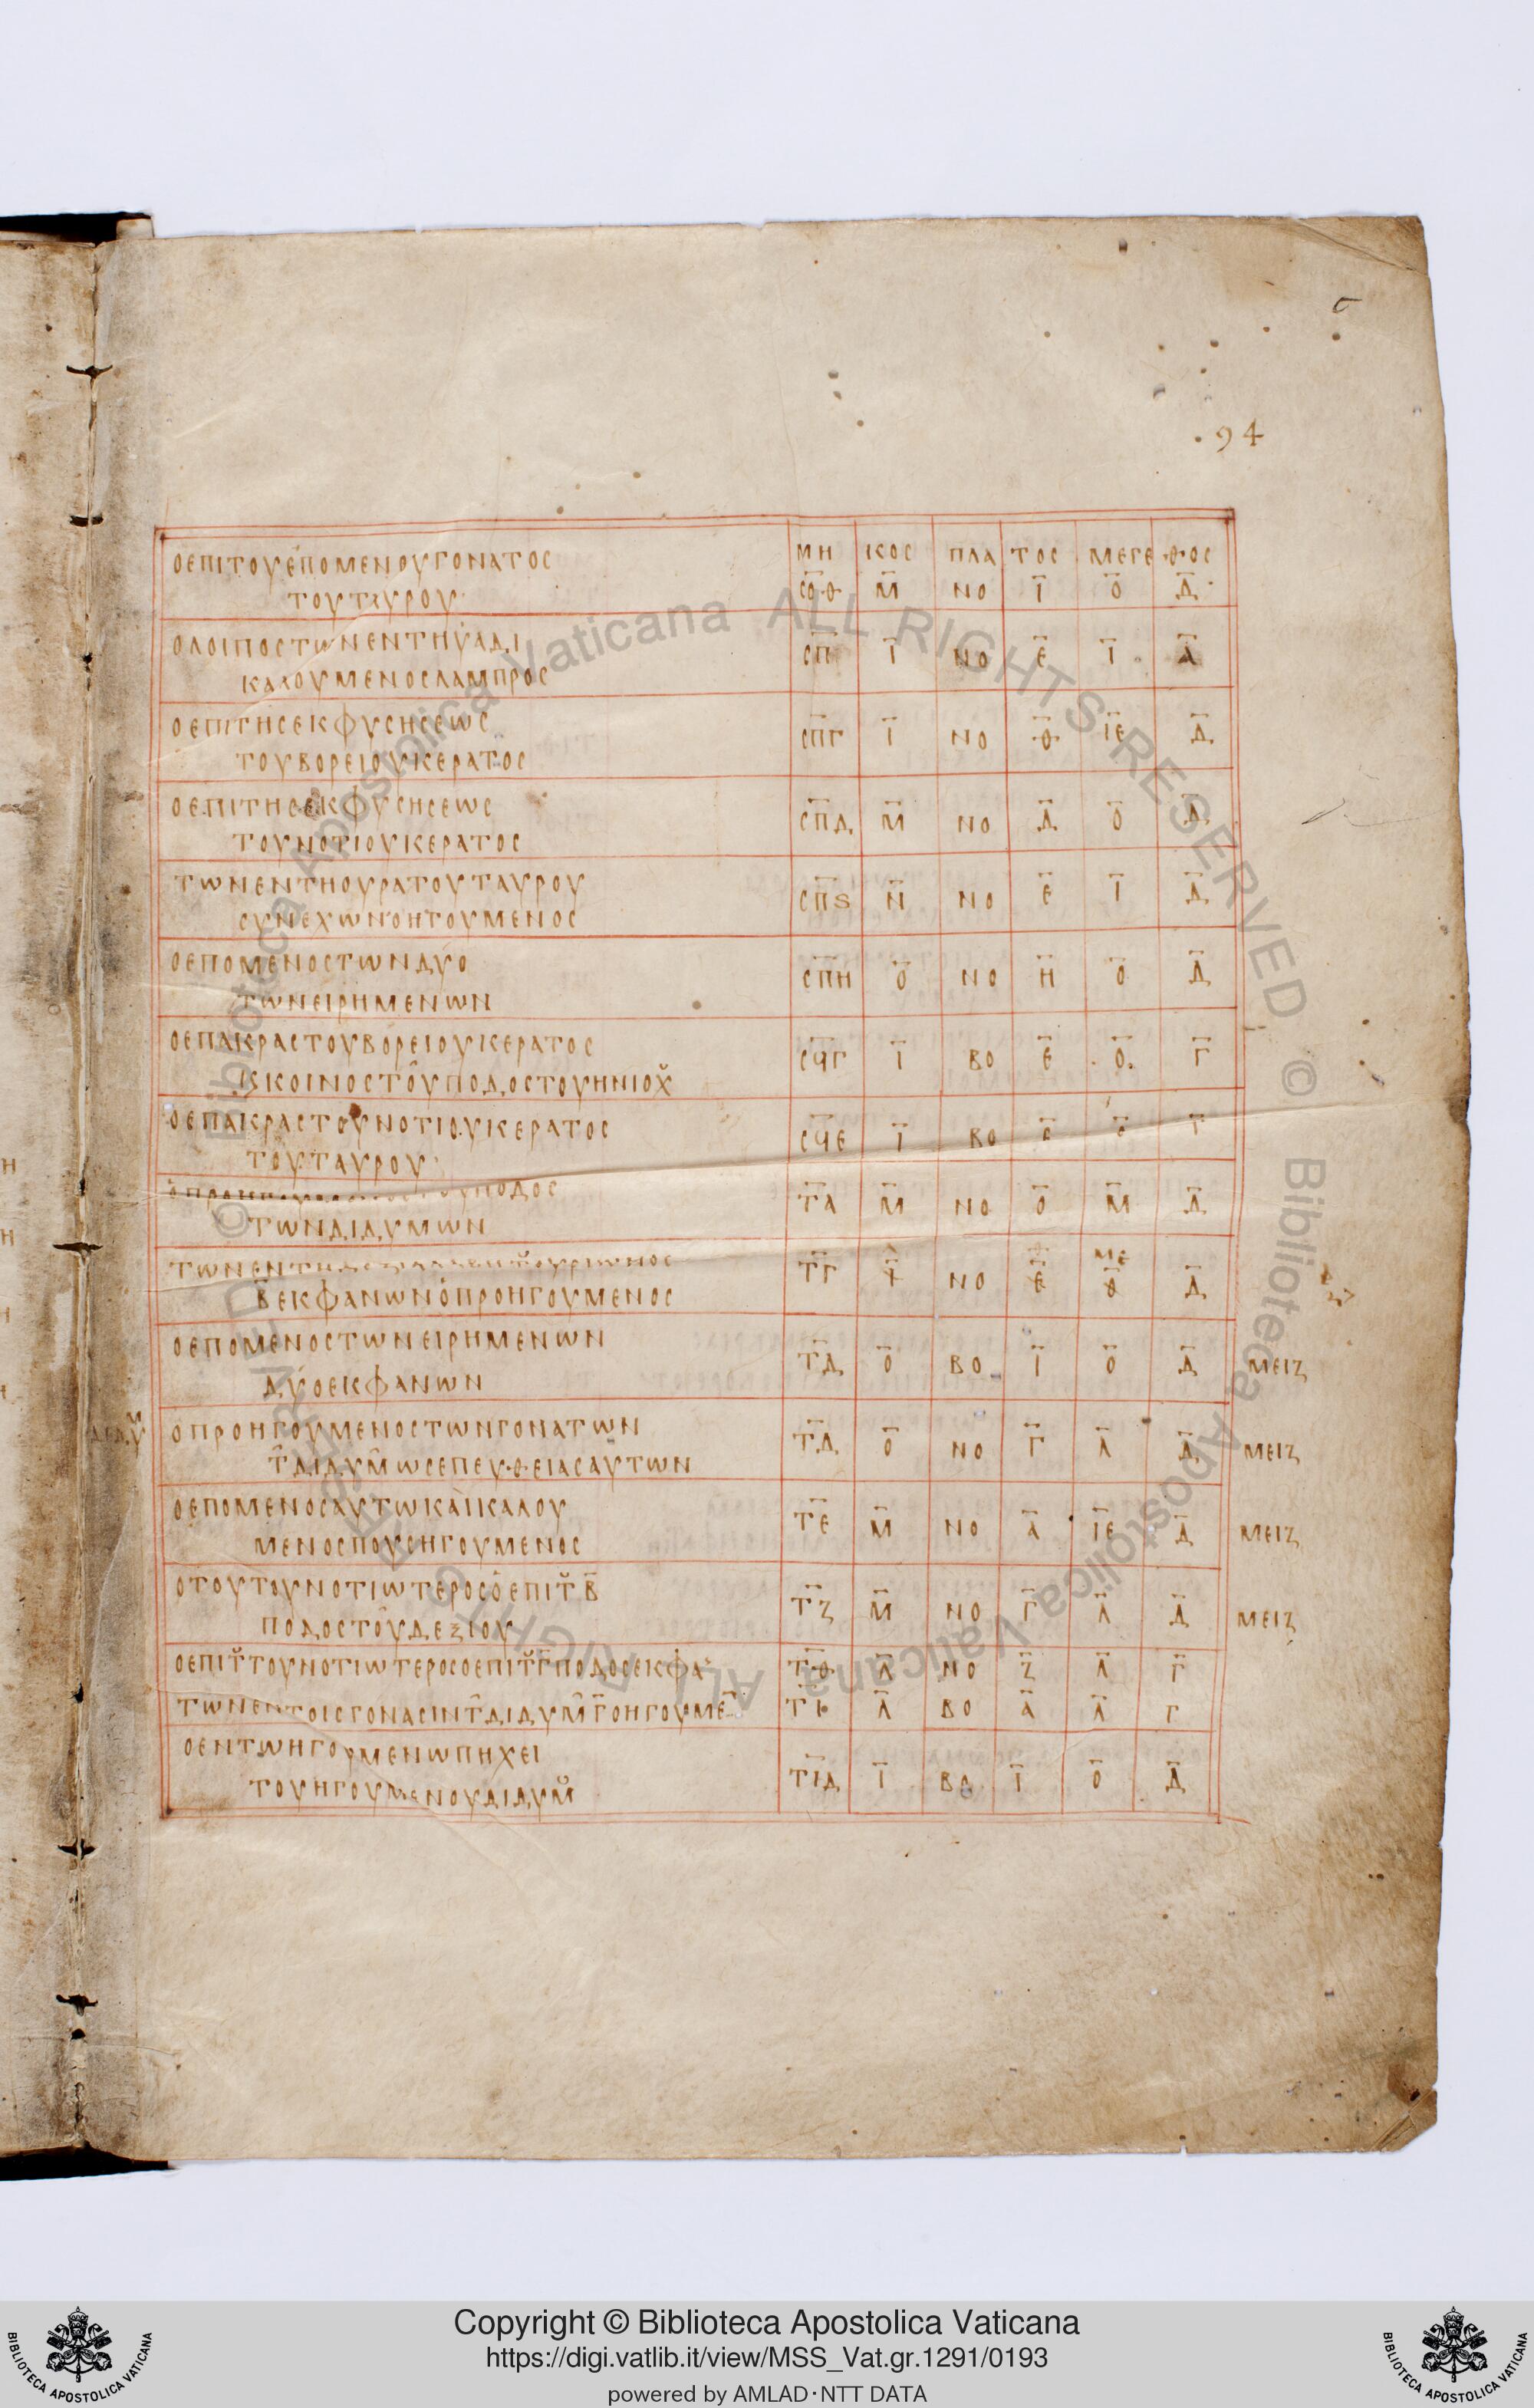 94
ΜΗ ΚΟΣ ΠΛΑ ΤΟΣ ΜΕΓΕ ΘΟΣ
ΟΕΠΙΤΟΥΕΠΟΜΕΝΟΥΓΟΝΑΤΟΣ
ΤΟΥΤΑΥΡΟΥ ΣΟΘ Μ ΝΟ Ι Ο Δ
ΟΛΟΙΠΟΣΤΩΝΕΝΤΗΥΑΔΙ
ΚΑΛΟΥΜΕΝΟΣΛΑΜΠΡΟΣ ΣΠ Ι ΝΟ Ε Ι Α
ΟΕΠΙΤΗΣΕΚΦΥΣΗΣΕΩΣ
ΤΟΥΒΟΡΕΙΟΥΚΕΡΑΤΟΣ ΣΠΓ Ι ΝΟ Θ ΙΕ Δ
ΟΕΠΙΤΗΣΕΚΦΥΣΗΣΕΩΣ
ΤΟΥΝΟΤΙΟΥΚΕΡΑΤΟΣ ΣΠΔ Μ ΝΟ Δ Ο Δ
ΤΩΝΕΝΤΗΟΥΡΑΤΟΥΤΑΥΡΟΥ
ΣΥΝΕΧΩΝΟΗΓΟΥΜΕΝΟΣ ΣΠϚ Ν ΝΟ Ε Ι Δ
ΟΕΠΟΜΕΝΟΣΤΩΝΔΥΟ
ΤΩΝΕΙΡΗΜΕΝΩΝ ΣΠΗ Ο ΝΟ Η Ο Δ
ΟΕΠΑΚΡΑΣΤΟΥΒΟΡΕΙΟΥΚΕΡΑΤΟΣ
ΚΟΙΝΟΣΤΟΥΠΟΔΟΣΤΟΥΗΝΙΟΧΟΥ ΣϞΓ Ι ΒΟ Ε Ο Γ
ΟΕΠΑΚΡΑΣΤΟΥΝΟΤΙΟΥΚΕΡΑΤΟΣ
ΤΟΥΤΑΥΡΟΥ ΣϞΕ Ι ΒΟ Γ
ΤΩΝΔΙΔΥΜΩΝ ΤΑ Μ ΝΟ Ο Μ Δ
ΒΕΚΦΑΝΩΝΟΠΡΟΗΓΟΥΜΕΝΟΣ ΤΓ ΝΟ Ε ΜΕ Δ
ΟΕΠΟΜΕΝΟΣΤΩΝΕΙΡΗΜΕΝΩΝ
ΔΥΟΕΚΦΑΝΩΝ ΤΔ Ο ΒΟ Ι Ο Δ ΜΕΙΖ
ΟΠΡΟΗΓΟΥΜΕΝΟΣΤΩΝΓΟΝΑΤΩΝ
ΤΔΙΔΥΜΩΣΕΠΕΥΘΕΙΑΣΑΥΤΩΝ ΤΔ Ο ΝΟ Γ Λ Δ ΜΕΙΖ
ΟΕΠΟΜΕΝΟΣΑΥΤΩΚΑΙΚΑΛΟΥ
ΜΕΝΟΣΠΟΥΣΗΓΟΥΜΕΝΟΣ ΤΕ Μ ΝΟ Α ΙΕ Δ ΜΕΙΖ
ΟΤΟΥΤΟΥΝΟΤΙΩΤΕΡΟΣΟΕΠΙΤΒ
ΠΟΔΟΣΤΟΥΔΕΞΙΟΥ ΤΖ Μ ΝΟ Γ Λ Δ ΜΕΙΖ
ΟΕΠΙΤΤΟΥΝΟΤΙΩΤΕΡΟΣΟΕΠΙΤΓΠΟΔΟΣΕΚΦΑ ΤΘ Λ ΝΟ Ζ Λ Γ
ΤΩΝΕΝΤΟΙΣΓΟΝΑΣΙΝΤΔΙΔΥΜΓΟΗΓΟΥΜΕ Λ ΒΟ Α Λ Γ
ΟΕΝΤΩΗΓΟΥΜΕΝΩΠΗΧΕΙ
ΤΟΥΗΓΟΥΜΕΝΟΥΔΙΔΥΜ ΤΙΔ Ι ΒΟ Ι Ο Δ
© Biblioteca Apostolica Vaticana ALL RIGHTS RESERVED © Biblioteca Apostolica Vaticana ALL RIGHTS RESERVED
Copyright © Biblioteca Apostolica Vaticana
https://digi.vatlib.it/view/MSS_Vat.gr.1291/0193
powered by AMLAD·NTT DATA
BIBLIOTECA APOSTOLICA VATICANA
BIBLIOTECA APOSTOLICA VATICANA